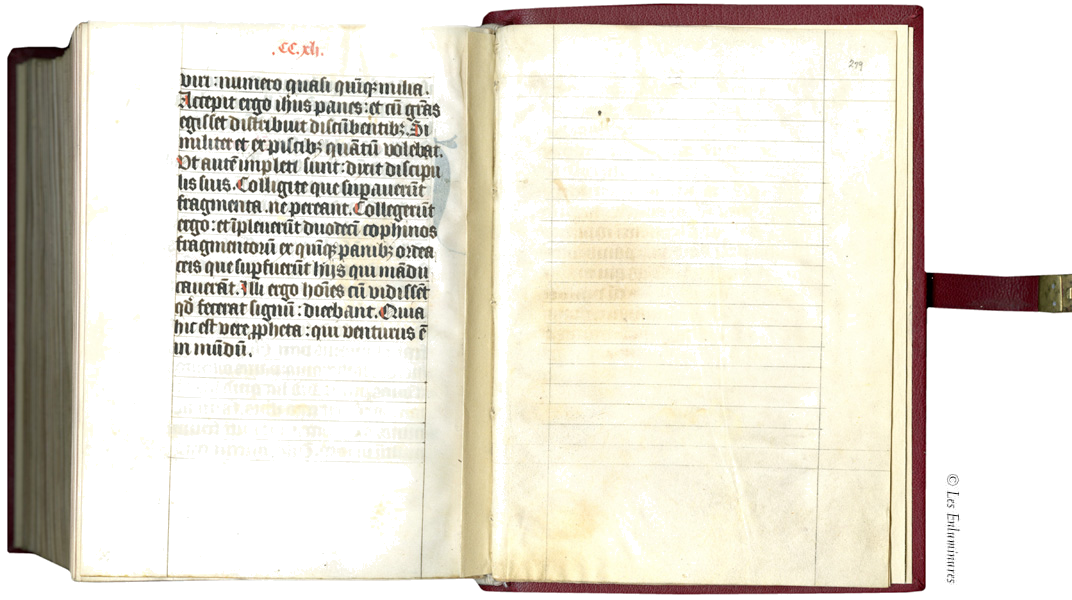 .CC.xli.
viri : numero quasi quīqꝫ milia .
Accepit ergo ihūs panes : et cū gr̄as
egisset distribuit discūbentibꝫ . Si
militer et ex piscibꝫ quātū volebat.
Vt autē impleti sunt : dixit discipu
lis suis . Colligite que suꝑauerūt
fragmenta . ne pereant . Collegerūt
ergo : et īpleuerūt duodecī cophinos
fragmentorū ex quīqꝫ panibꝫ ordea
ceis que suꝑfuerūt hijs qui mādu
cauerāt . Illi ergo hoīes cū vidissēt
qd̓ fecerat signū : dicebant . Quia
hic est vere ꝓpheta : qui venturus ē
in mūdū .
279
© Les Enluminures